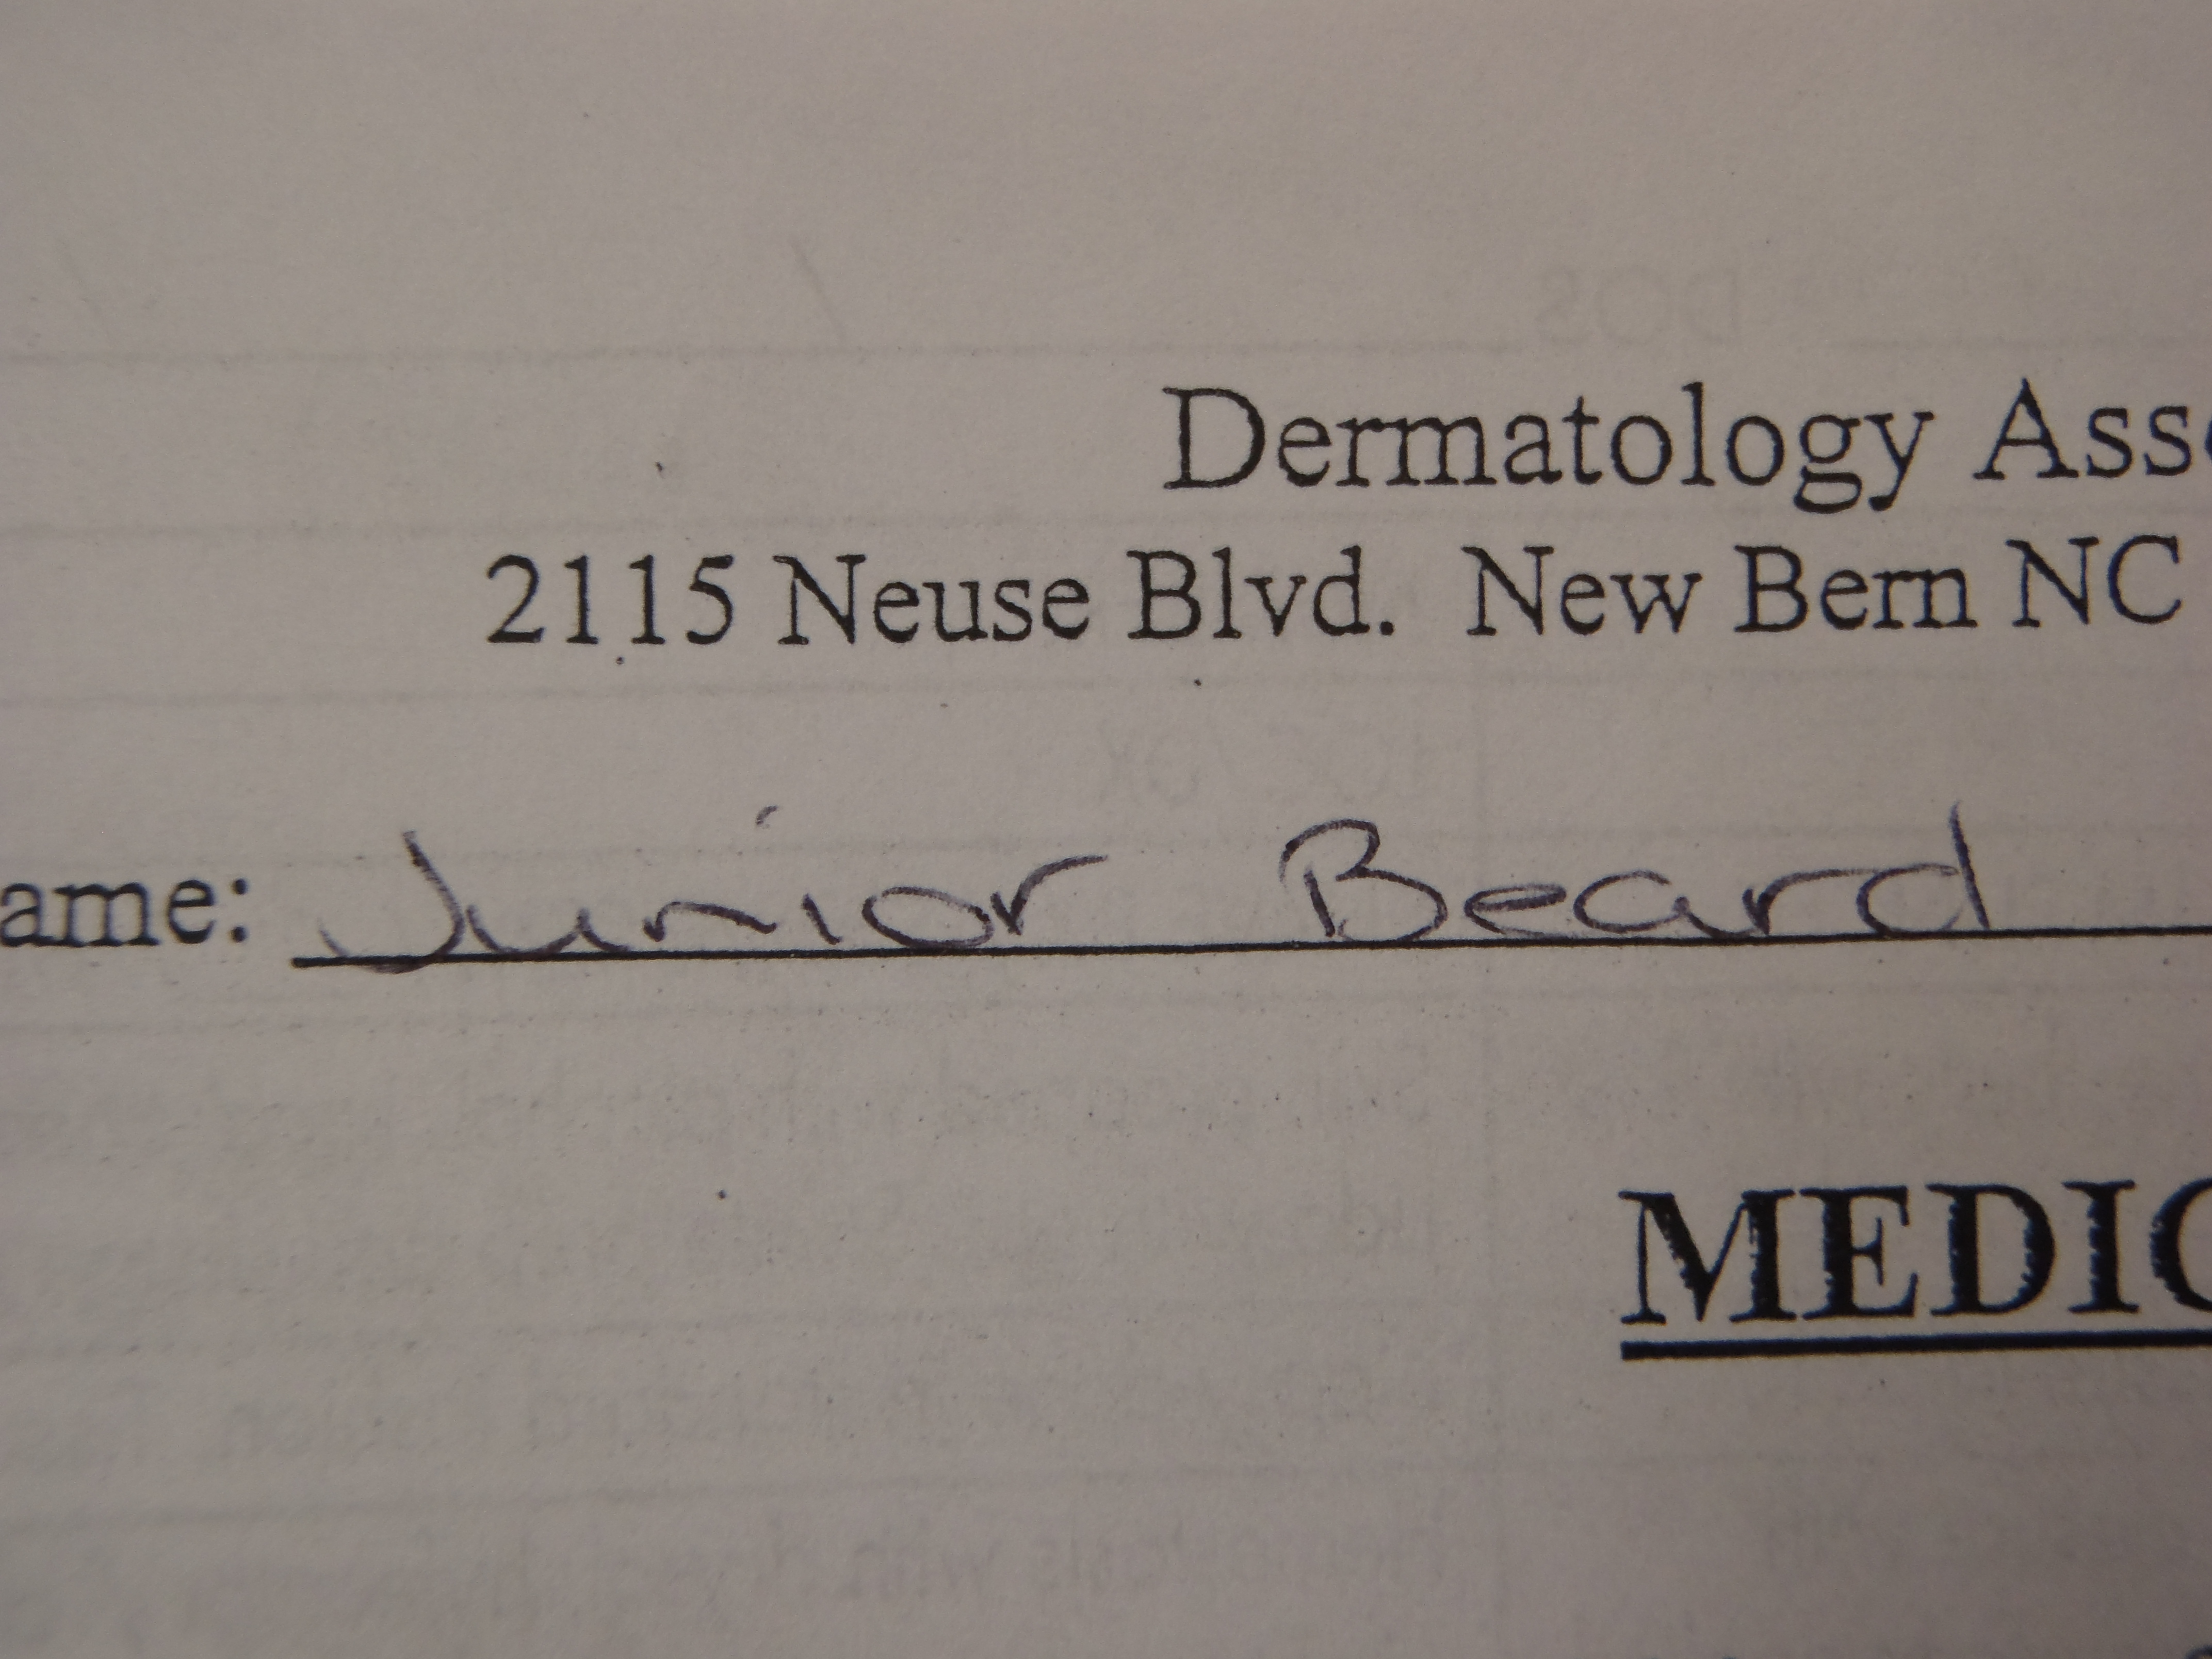 Dermatology Asso
2115 Neuse Blvd. New Bern NC
ame: Junior Beard
MEDIC